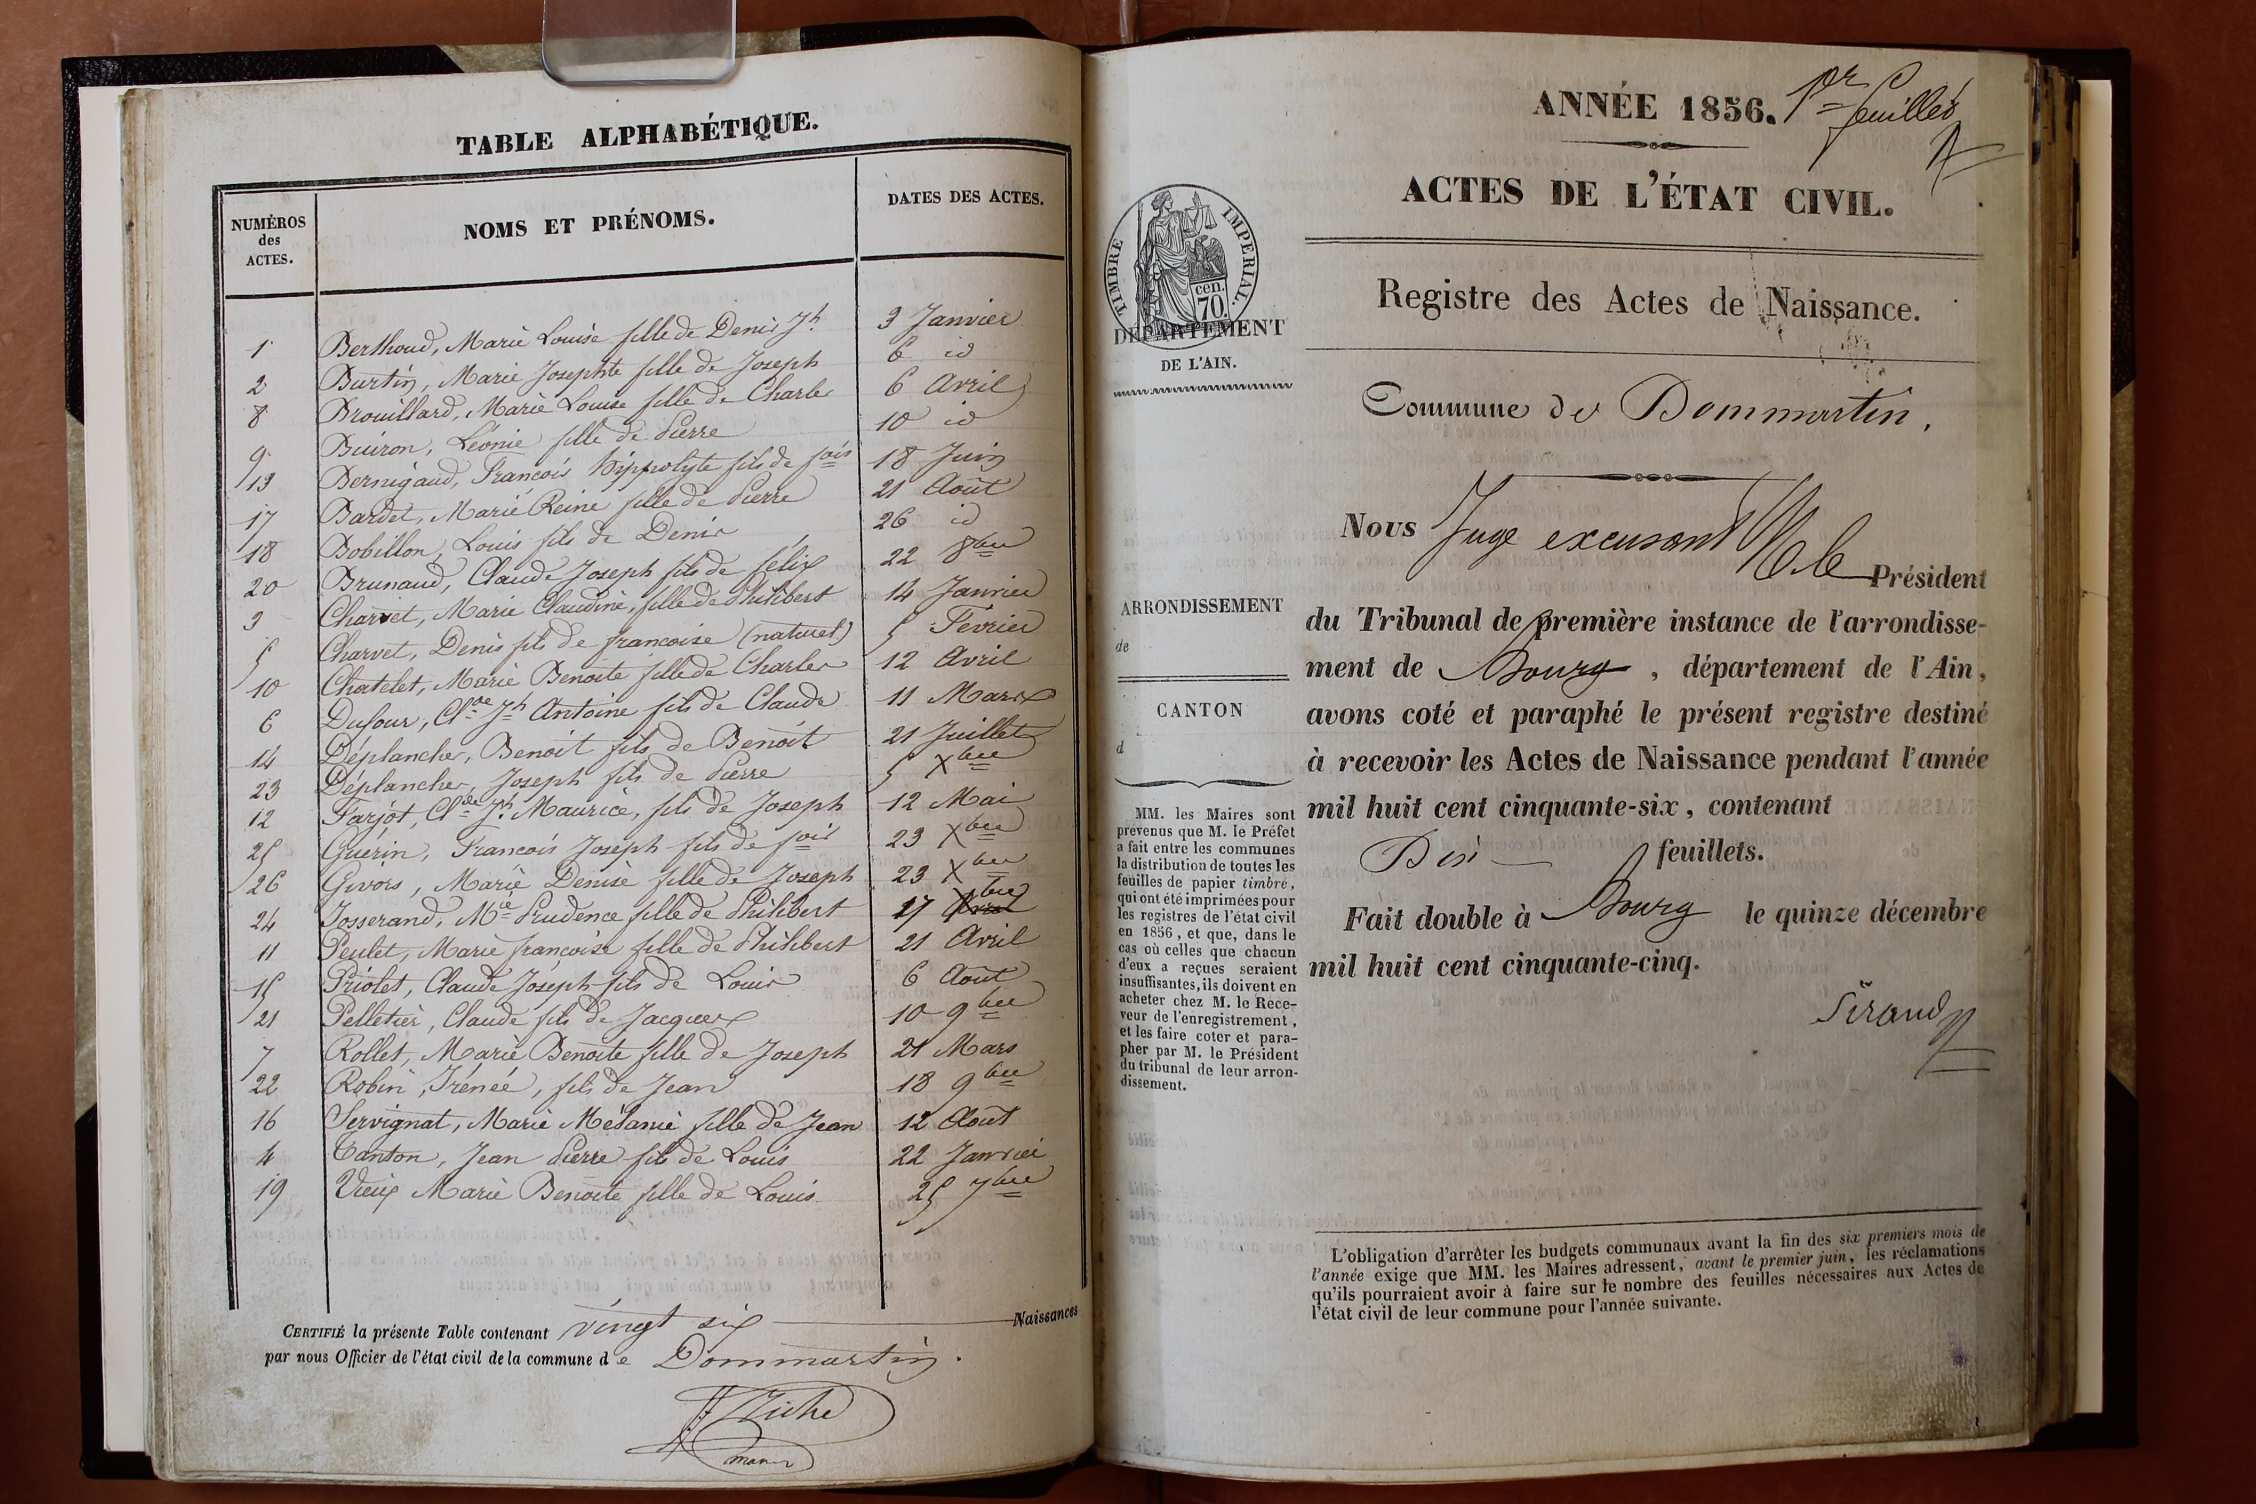 TABLE ALPHABÉTIQUE.
NUMÉROS des ACTES.
NOMS ET PRÉNOMS.
DATES DES ACTES.
1 Berthoud, Marie Louise fille de Denis Jh. 3 Janvier
2 Burtin, Marie Josephte fille de Joseph 6 id
8 Brouillard, Marie Louise fille de Charles 6 Avril
9 Buiron, Léonie fille de Pierre 10 id
13 Bernigaud, François hippolyte fils de fois 18 Juin
17 Bardet, Marie Reine fille de Pierre 21 Août
18 Bobillon, Louis fils de Denis 26 id
20 Brunaud, Claude Joseph fils de félix 22 8bre
3 Charvet, Marie Claudine, fille de Philibert 14 Janvier
5 Charvet, Denis fils de françoise (naturel) 5 Février
10 Chatelet, Marie Benoite fille de Charles 12 Avril
6 Dufour, Clde Jh Antoine fils de Claude 11 Mars
14 Déplanche, Benoit fils de Benoit 21 Juillet
23 Déplanche, Joseph fils de Pierre 5 Xbre
12 Farjot, Clde Jh. Maurice, fils de Joseph 12 Mai
25 Guérin, François Joseph fils de fois 23 Xbre
26 Givors, Marie Denise fille de Joseph 23 Xbre
24 Josserand, Mie Prudence fille de Philibert 17 Xbre
11 Peulet, Marie françoise fille de Philibert 21 Avril
15 Priolet, Claude Joseph fils de Louis 6 Août
21 Pelletier, Claude fils de Jacques 10 9bre
7 Rollet, Marie Benoite fille de Joseph 21 Mars
22 Robin, Irénée, fils de Jean 18 9bre
16 Servignat, Marie Mélanie fille de Jean 12 Août
4 Tanton, Jean Pierre fils de Louis 22 Janvier
19 Vieux Marie Benoite fille de Louis 25 7bre
CERTIFIÉ la présente Table contenant vingt six Naissances
par nous Officier de l'état civil de la commune de Dommartin.
maire
ANNÉE 1856. 1er feuillet
ACTES DE L'ÉTAT CIVIL.
TIMBRE IMPERIAL.
cen.
70.
DÉPARTEMENT
DE L'AIN.
Registre des Actes de Naissance.
Commune de Dommartin.
Nous Juge excusant M. le Président
du Tribunal de première instance de l'arrondisse-
ment de Bourg, département de l'Ain,
avons coté et paraphé le présent registre destiné
à recevoir les Actes de Naissance pendant l'année
mil huit cent cinquante-six, contenant
Dix feuillets.
Fait double à Bourg le quinze décembre
mil huit cent cinquante-cinq.
Sirand
ARRONDISSEMENT
de
CANTON
d
MM. les Maires sont
prévenus que M. le Préfet
a fait entre les communes
la distribution de toutes les
feuilles de papier timbré,
qui ont été imprimées pour
les registres de l'état civil
en 1856, et que, dans le
cas où celles que chacun
d'eux a reçues seraient
insuffisantes, ils doivent en
acheter chez M. le Rece-
veur de l'enregistrement,
et les faire coter et para-
pher par M. le Président
du tribunal de leur arron-
dissement.
L'obligation d'arrêter les budgets communaux avant la fin des six premiers mois de
l'année exige que MM. les Maires adressent, avant le premier juin, les réclamations
qu'ils pourraient avoir à faire sur le nombre des feuilles nécessaires aux Actes de
l'état civil de leur commune pour l'année suivante.